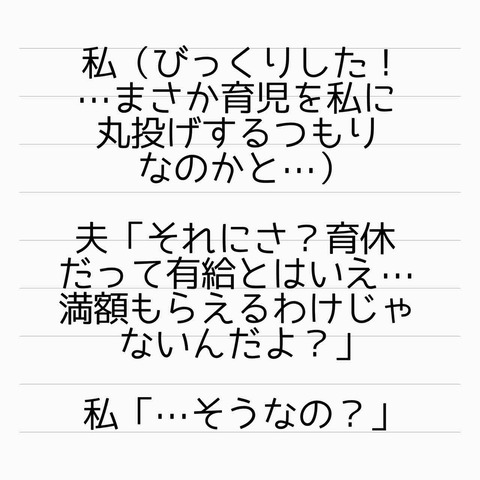 私（びっくりした！
…まさか育児を私に
丸投げするつもり
なのかと…）
夫「それにさ？育休
だって有給とはいえ…
満額もらえるわけじゃ
ないんだよ？」
私「…そうなの？」